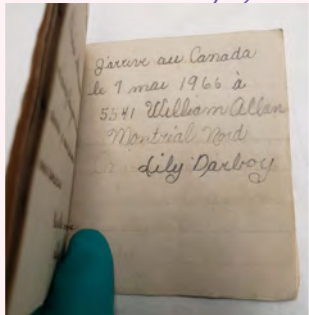 J'arrive au Canada
le 7 mai 1966 à
5541 William Allan
Montréal Nord
Lily Darboy